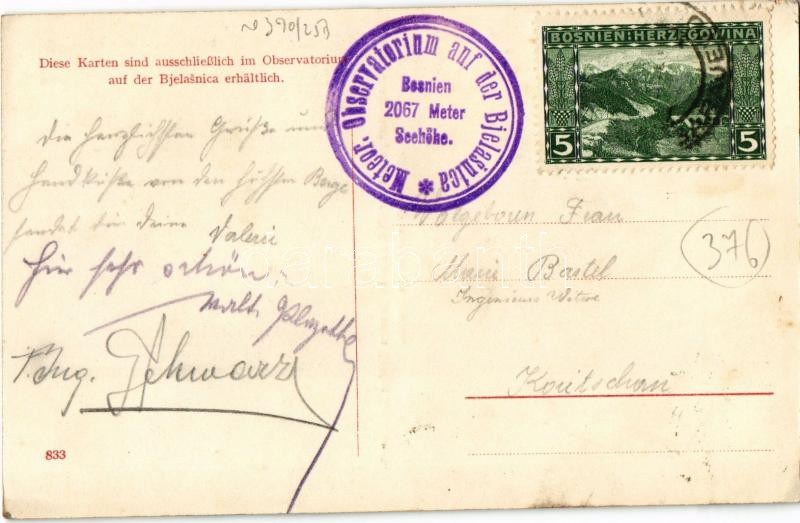 № 390/25B
Diese Karten sind ausschließlich im Observatorium
auf der Bjelašnica erhältlich.
Meteor. Observatorium auf der Bjelašnica *
Bosnien
2067 Meter
Seehöhe.
BOSNIEN-HERZEGOWINA
5 5
Die herzlichsten Grüße und
Handküsse von den höchsten Berge
sendet dir deine Valerie
hier sehr schön
Walt.
Ing. Schwarz
Frau
Marie Bastel
Ingenieurs Witwe
376
Koritschau
833